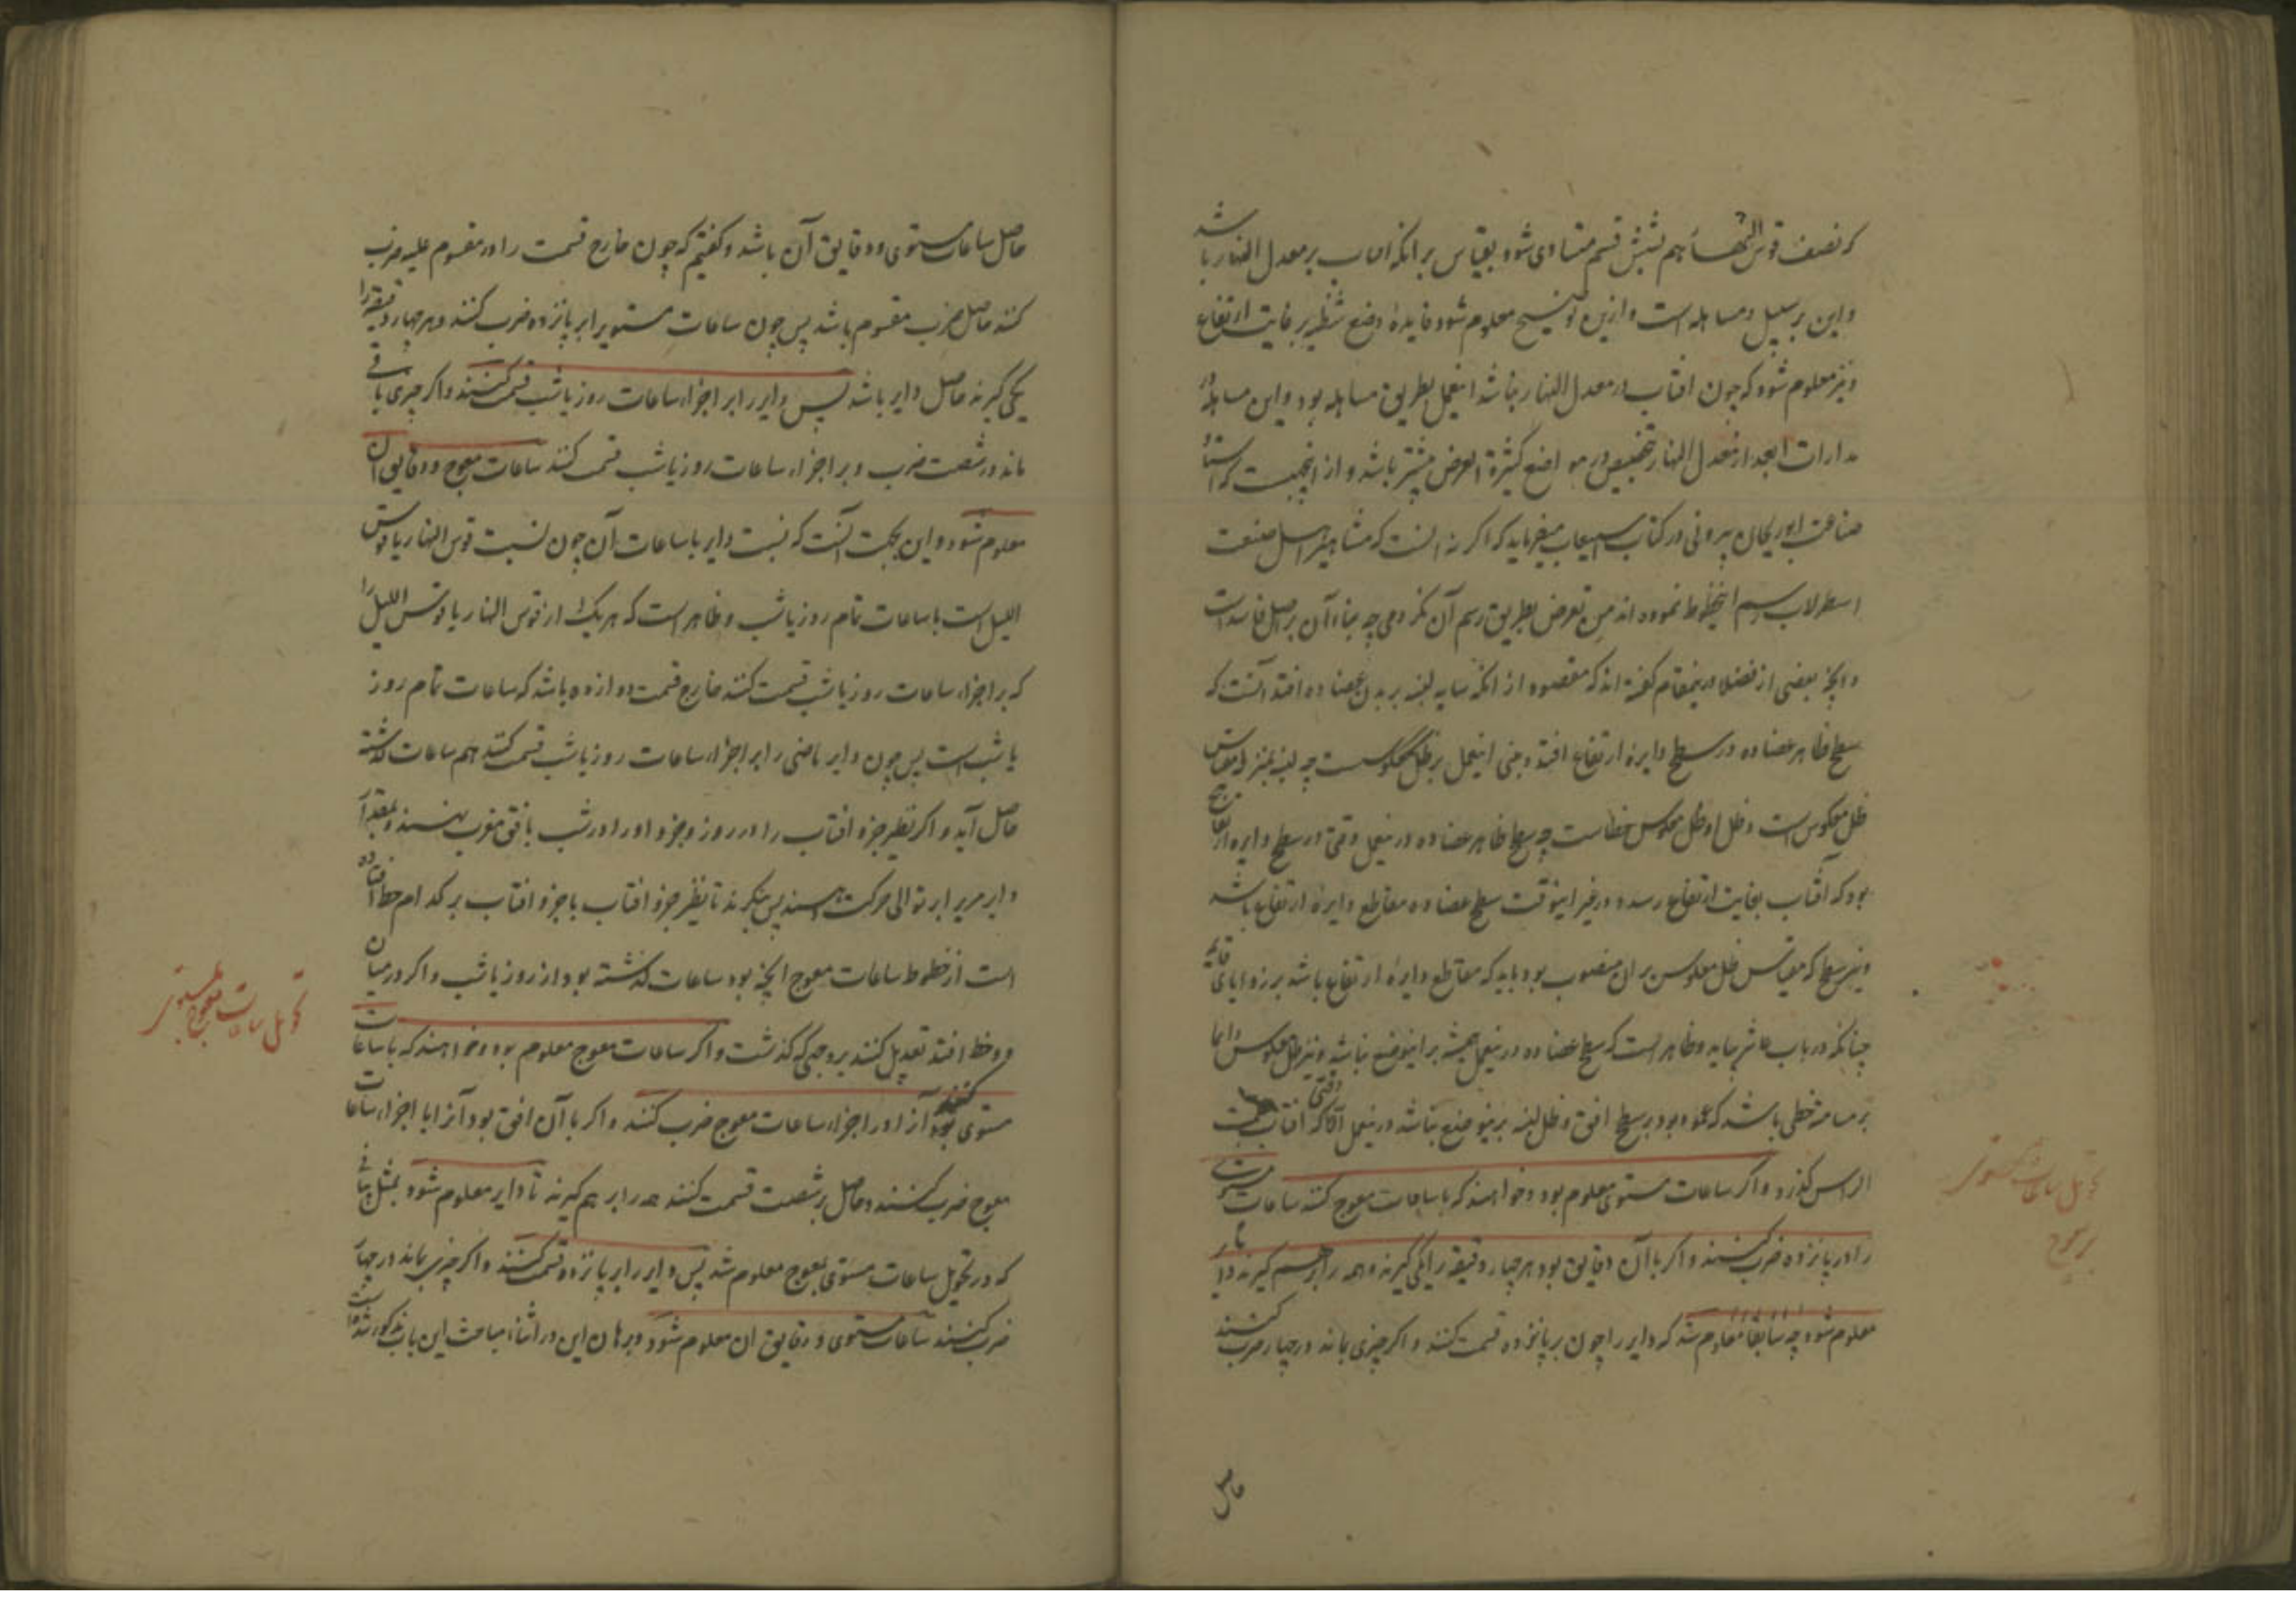 که نصف قوس النهار هم بشش قسم متساوی شود بقیاس بر آنکه افتاب بر معدل النهار باشد
و این بر سبیل مساهله است و ازین توضیح معلوم شود فایدهٔ وضع شظیه بر غایت ارتفاع
و نیز معلوم شود که چون افتاب در معدل النهار نباشد اینعمل بطریق مساهله بود و این مساهله در
مدارات ابعد از معدل النهار بتخصیص در مواضع کثیرة العرض بیشتر باشد و از اینجهت که استاد
صناعت ابوریحان بیرونی در کتاب استیعاب میفرماید که اگر نه آنست که مشاهیر اهل صنعت
اسطرلاب رسم اینخطوط نموده اند من تعرض بطریق رسم آن نکردمی چه بناء آن بر اصل فاسد است
و آنچه بعضی از فضلا درینمقام گفته اند که مقصود از آنکه سایه لبنه بر بدن عضاده افتد آنست که
سطح ظاهر عضاده در سطح دایرهٔ ارتفاع افتد و مبنی اینعمل بر ظل معکوسست چه لبنه بمنزله مقیاس
ظل معکوس است و ظل او ظل معکوس خطاست چه سطح ظاهر عضاده درینعمل وقتی در سطح دایره ارتفاع
بود که آفتاب بغایت ارتفاع رسد و در غیر اینوقت سطح عضاده مقاطع دایرهٔ ارتفاع باشد
و نیز سطح که مقیاس ظل معکوس بر ان منصوب بود باید که مقاطع دایرهٔ ارتفاع باشد بر زوایای قائمه
چنانکه در باب عاشر بیاید و ظاهر است که سطح عضاده درینعمل همیشه بر اینوضع نباشد و نیز ظل معکوس دایما
بر مسامته خطی باشد که عمود بود بر سطح افق و ظل لبنه برینوضع نباشد درینعمل الا وقتی که افتاب بسمت
الراس گذرد و اگر ساعات مستوی معلوم بود و خواهند که با ساعات معوج کنند ساعات مستوی
را در پانزده ضرب کنند و اگر باآن دقایق بود هر چهار دقیقه را یکی گیرند و همه را بر هم گیرند دایر
معلوم شود چه سابقا معلوم شد که دایر را چون بر پانزده قسمت کنند و اگر چیزی بماند در چهار ضرب کنند
حاصل
تحویل ساعات مستوی
بمعوج
حاصل ساعات مستوی و دقایق آن باشد و گفتیم که چون خارج قسمت را در مقسوم علیه ضرب
کنند حاصل ضرب مقسوم باشد پس چون ساعات مستویرا بر پانزده ضرب کنند و هر چهار دقیقه را
یکی گیرند حاصل دایر باشد پس دایر را بر اجزاء ساعات روز یا شب قسمت کنند و اگر چیزی باقی
ماند در شصت ضرب و بر اجزاء ساعات روز یا شب قسمت کنند ساعات معوج و دقایق آن
معلوم شود و این بجهت آنست که نسبت دایر با ساعات آن چون نسبت قوس النهار یا قوس
اللیل است با ساعات تمام روز یا شب و ظاهر است که هر یک از قوس النهار یا قوس اللیل را
که بر اجزاء ساعات روز یا شب قسمت کنند خارج قسمت دوازده باشد که ساعات تمام روز
یا شب است پس چون دایر ماضی را بر اجزاء ساعات روز یا شب قسمت کنند هم ساعات گذشته
حاصل آید و اگر نظیر جزء افتاب را در روز و جزء او را در شب بافق مغرب نهند و بمقدار
دایر مری را بر توالی حرکت دهند پس بنگرند تا نظیر جزء افتاب یا جزء افتاب بر کدام خط افتاده
است از خطوط ساعات معوج آنچه بود ساعات گذشته بود از روز یا شب و اگر در میان
دو خط افتد تعدیل کنند بر وجهی که گذشت و اگر ساعات معوج معلوم بود و خواهند که با ساعات
مستوی کنند آنرا در اجزاء ساعات معوج ضرب کنند و اگر با آن دقایق بود آنرا با اجزاء ساعات
معوج ضرب کنند و حاصل بر شصت قسمت کنند همه را بر هم گیرند تا دایر معلوم شود بمثل بیانی
که در تحویل ساعات مستوی بمعوج معلوم شد پس دایر را بر پانزده قسمت کنند و اگر چیزی بماند در چهار
ضرب کنند ساعات مستوی و دقایق ان معلوم شود و برهان این در اثناء مباحث این باب مذکور شده است
تحویل ساعات معوج بمستوی